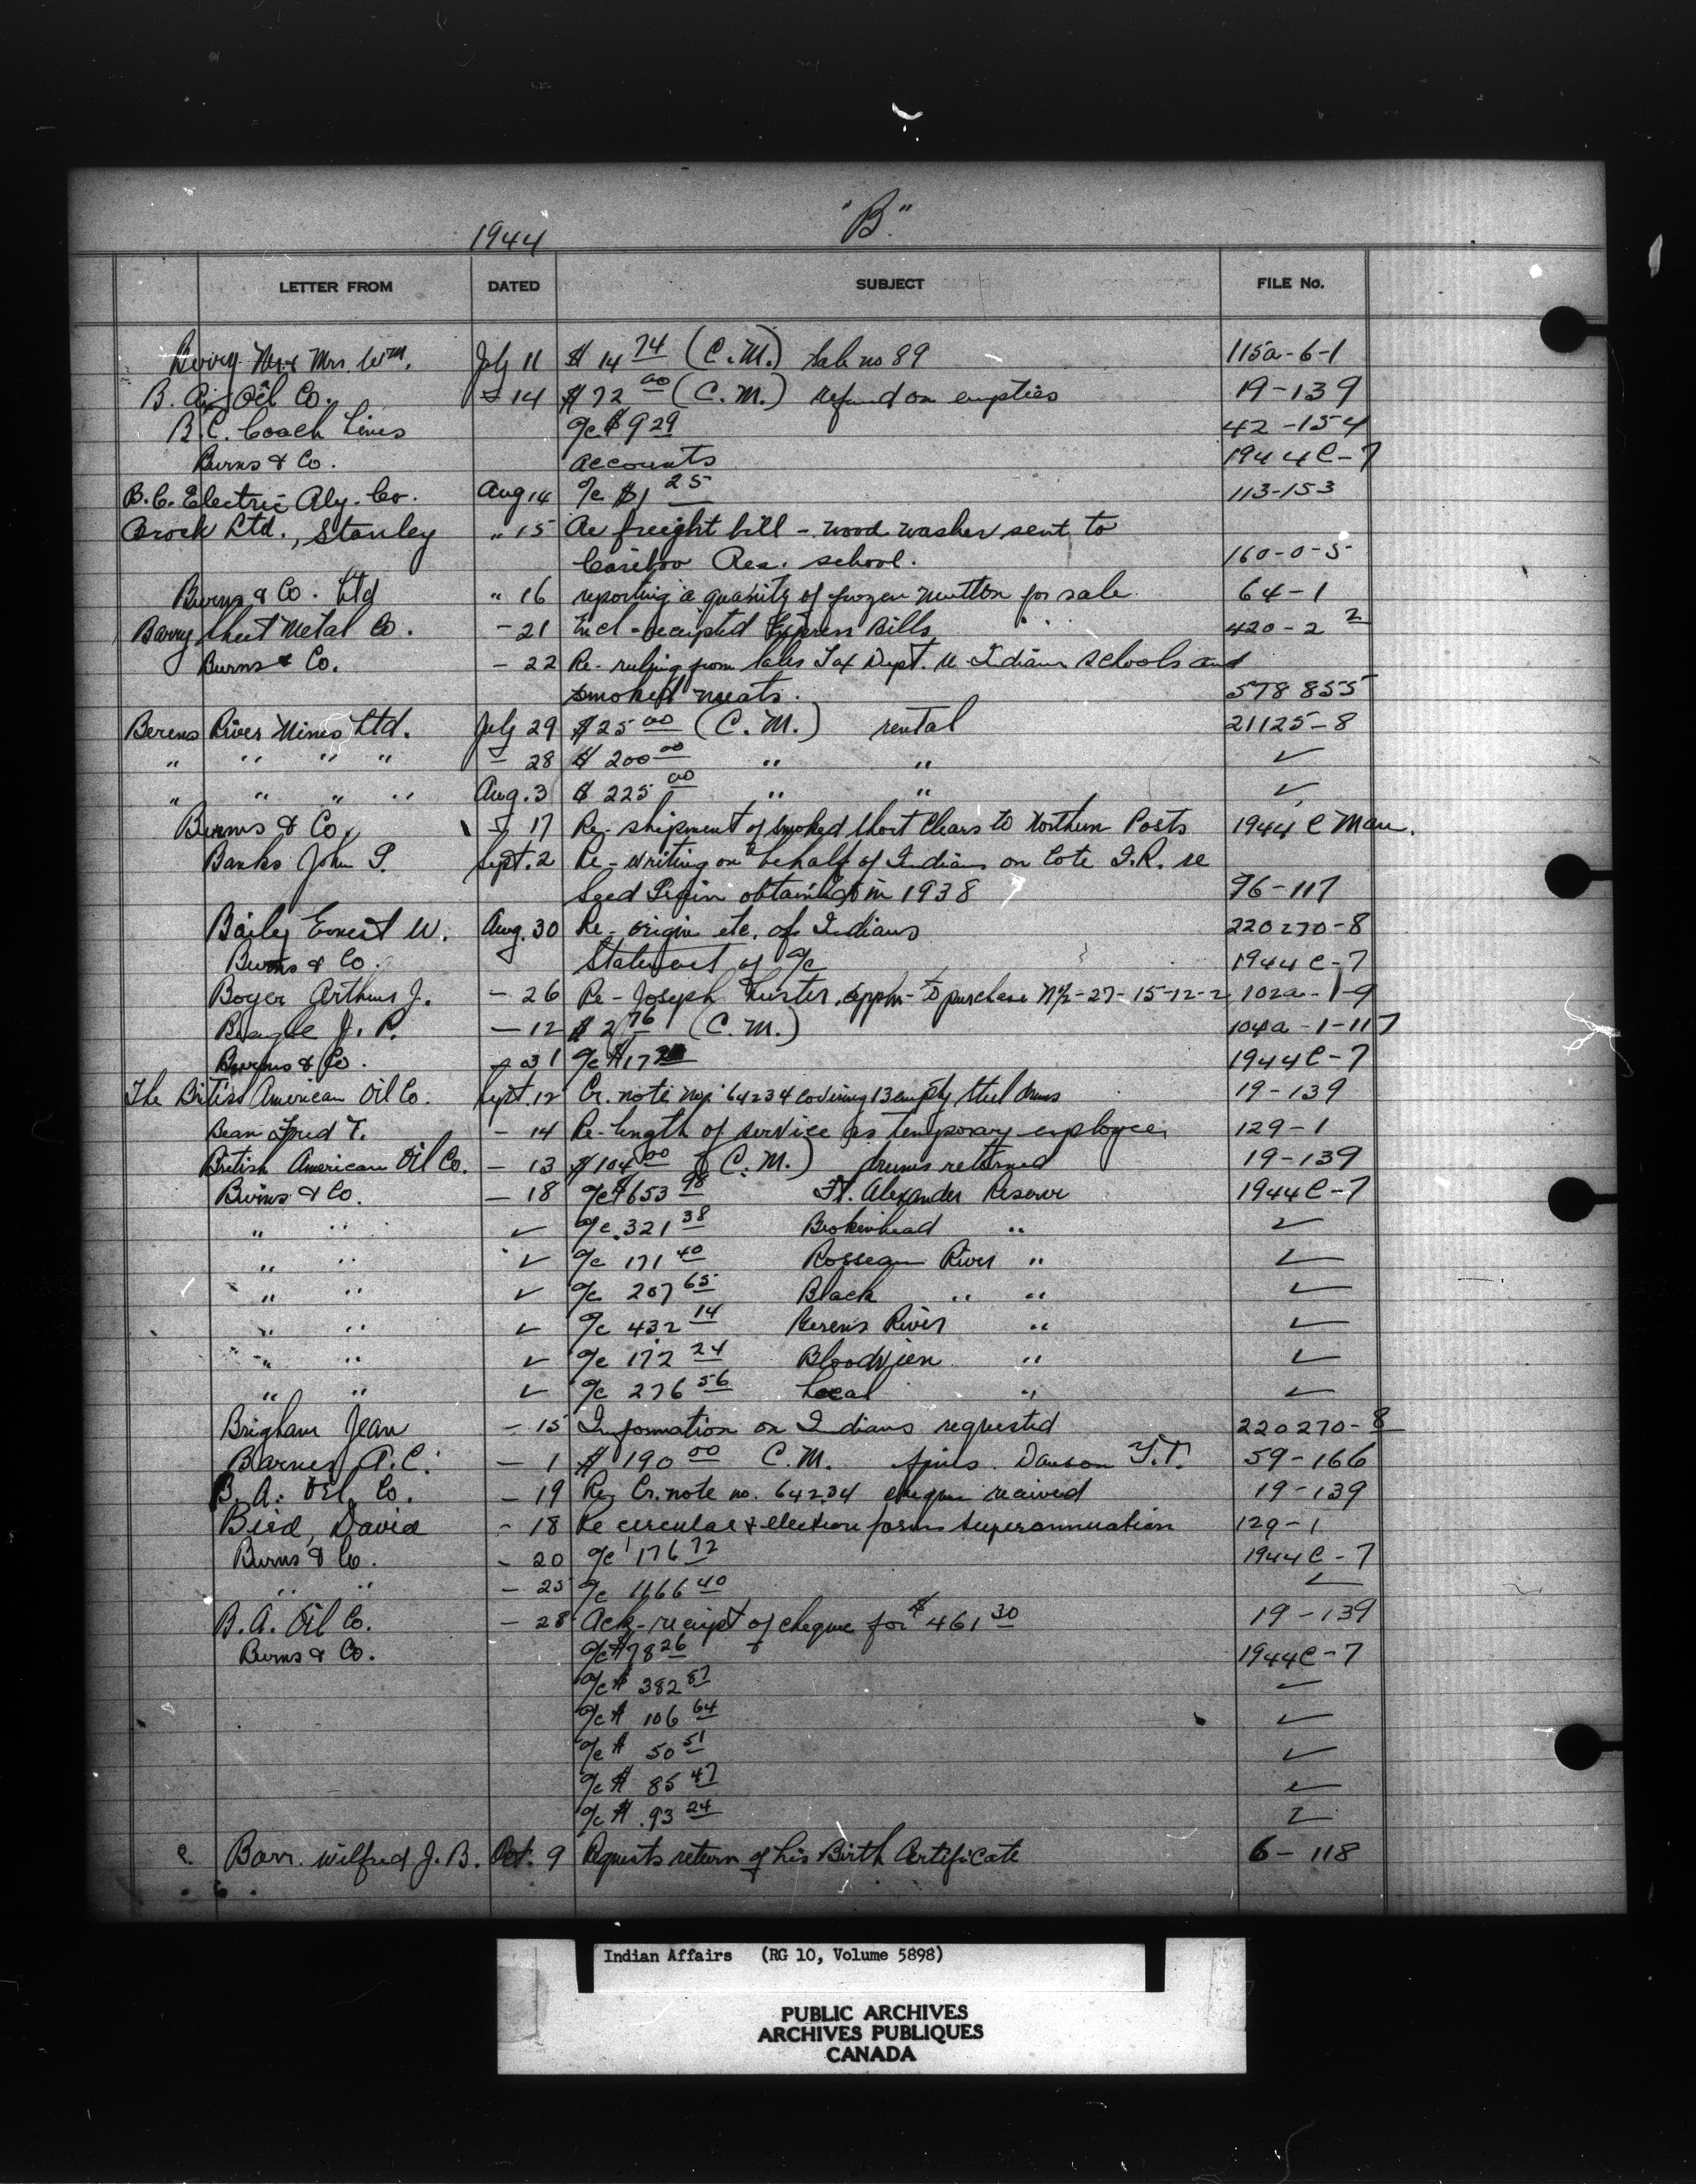 1944 "B"
LETTER FROM DATED SUBJECT FILE No.
Berry Mr & Mrs. Wm. July 11 $14 74 (C.M.) Sale no 89 115a-6-1
B. A. Oil Co. " 14 $72 00 (C.M.) refund on empties 19-139
B.C. Coach Lines a/c $9 29 42-154
Burns & Co. accounts 1944C-7
B.C. Electric Rly. Co. Aug 14 a/c $1 25 113-153
Brock Ltd., Stanley " 15 Re freight bill - wood washer sent to
Cariboo Res. school. 160-0-5
Burns & Co. Ltd " 16 reporting a quanity of frozen mutton for sale 64-1
Barry Sheet Metal Co. - 21 Encl - receipted Express Bills 420-2 2
Burns & Co. - 22 Re- ruling from Sales Tax Dept. re Indian Schools and
smoked meats. 578855
Berens River Mines Ltd. July 29 $25 00 (C.M.) rental 21125-8
" " " " - 28 $200 00 " " ✓
" " " " Aug. 3 $225 00 " " ✓
Burns & Co. - 17 Re- shipment of smoked short Clears to Northern Posts 1944 C Man.
Banks John P. Sept. 2 Re- writing on behalf of Indians on Cote I.R. re
Seed Grain obtained in 1938 96-117
Baily Ernest W. Aug. 30 Re- origin etc. of Indians 220270-8
Burns & Co. Statement of a/c 1944C-7
Boyer Arthur J. - 26 Re- Joseph appln- to purchase N½-27-15-12-2 102a-1-9
J. P. - 12 $2 76 (C.M.) 104a-1-117
Burns & Co. - 31 a/c $17 1944C-7
The British American Oil Co. Sept. 12 Cr. note no. 64234 covering 13 empty steel drums 19-139
Bean Fred T. - 14 Re- length of service as temporary employee 129-1
British American Oil Co. - 13 $104 00 (C.M.) drums returned 19-139
Burns & Co. - 18 a/c $653 98 Ft. Alexander Reserve 1944C-7
" " ✓ a/c 321 38 Brokenhead " ✓
" " ✓ a/c 171 40 Rosseau River " ✓
" " ✓ a/c 207 65 Black " " ✓
" " ✓ a/c 432 14 Berens River " ✓
" " ✓ a/c 172 24 Bloodvien " ✓
" " ✓ a/c 276 56 Local " ✓
Brigham Jean - 15 Information on Indians requested 220270-8
Barnes A.C. - 1 $190 00 C.M. fines Dawson Y.T. 59-166
B. A. Oil Co. - 19 Re Cr. note no. 64234 cheque received 19-139
Bird, David - 18 Re circular & election forms Superannuation 129-1
Burns & Co. - 20 a/c 176 72 1944C-7
" " - 25 a/c 1166 40 ✓
B.A. Oil Co. - 28 Ack- receipt of cheque for $461 30 19-139
Burns & Co. a/c $78 26 1944C-7
a/c $ 382 87 ✓
a/c $ 106 64 ✓
a/c $ 50 51 ✓
a/c $ 85 47 ✓
a/c $ 93 24 ✓
Barr. Wilfred J.B. Oct. 9 Requests return of his Birth Certificate 6-118
Indian Affairs (RG 10, Volume 5898)
PUBLIC ARCHIVES
ARCHIVES PUBLIQUES
CANADA